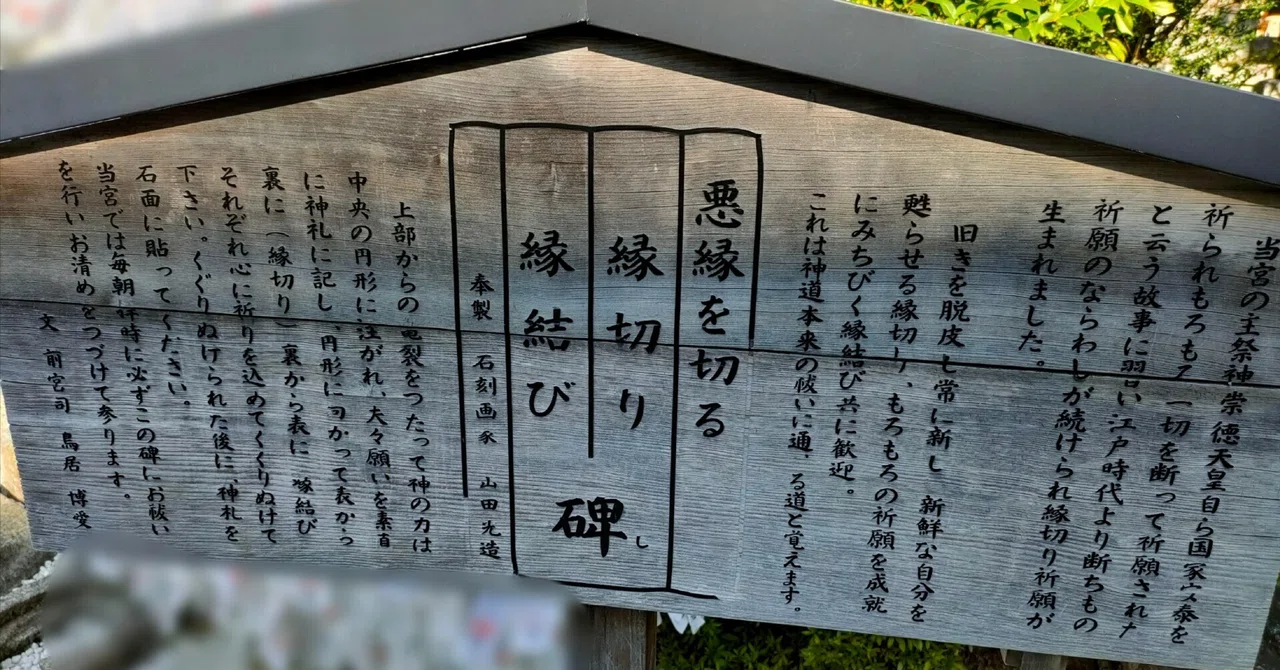 当宮の主祭神崇徳天皇自ら国家安泰を
祈られもろもろ一切を断って祈願された
と云う故事に習い江戸時代より断ちもの
祈願のならわしが続けられ縁切り祈願が
生まれました。
旧きを脱皮し常に新し 新鮮な自分を
甦らせる縁切り、もろもろの祈願を成就
にみちびく縁結び共に歓迎。
これは神道本来の祓いに通 る道と覚えます。
悪縁を切る
縁切り
縁結び
碑し
奉製 石刻画家 山田光造
上部からの亀裂をつたって神の力は
中央の円形に注がれ、大々願いを素直
に神札に記し、円形に向かって表から
裏に(縁切り)裏から表に 縁結び
それぞれ心に祈りを込めてくぐりぬけて
下さい。くぐりぬけられた後に、神札を
石面に貼ってください。
当宮では毎朝拝時に必ずこの碑にお祓い
を行いお清めをつづけて参ります。
文 前宮司 鳥居 博愛